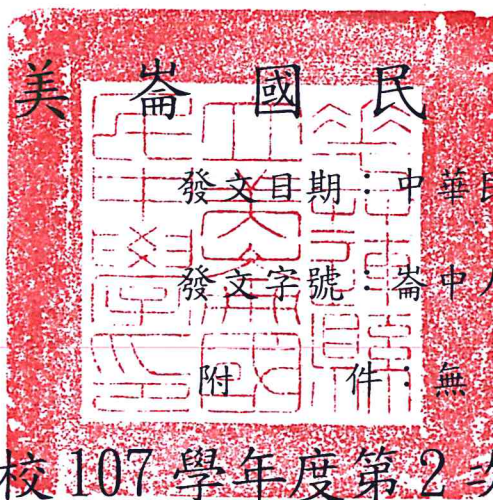 美崙國民
發文日期：中華民
發文字號：崙中人
附件：無
校107學年度第2次